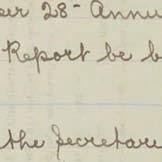 28- Annu
Report be b
the Secretar